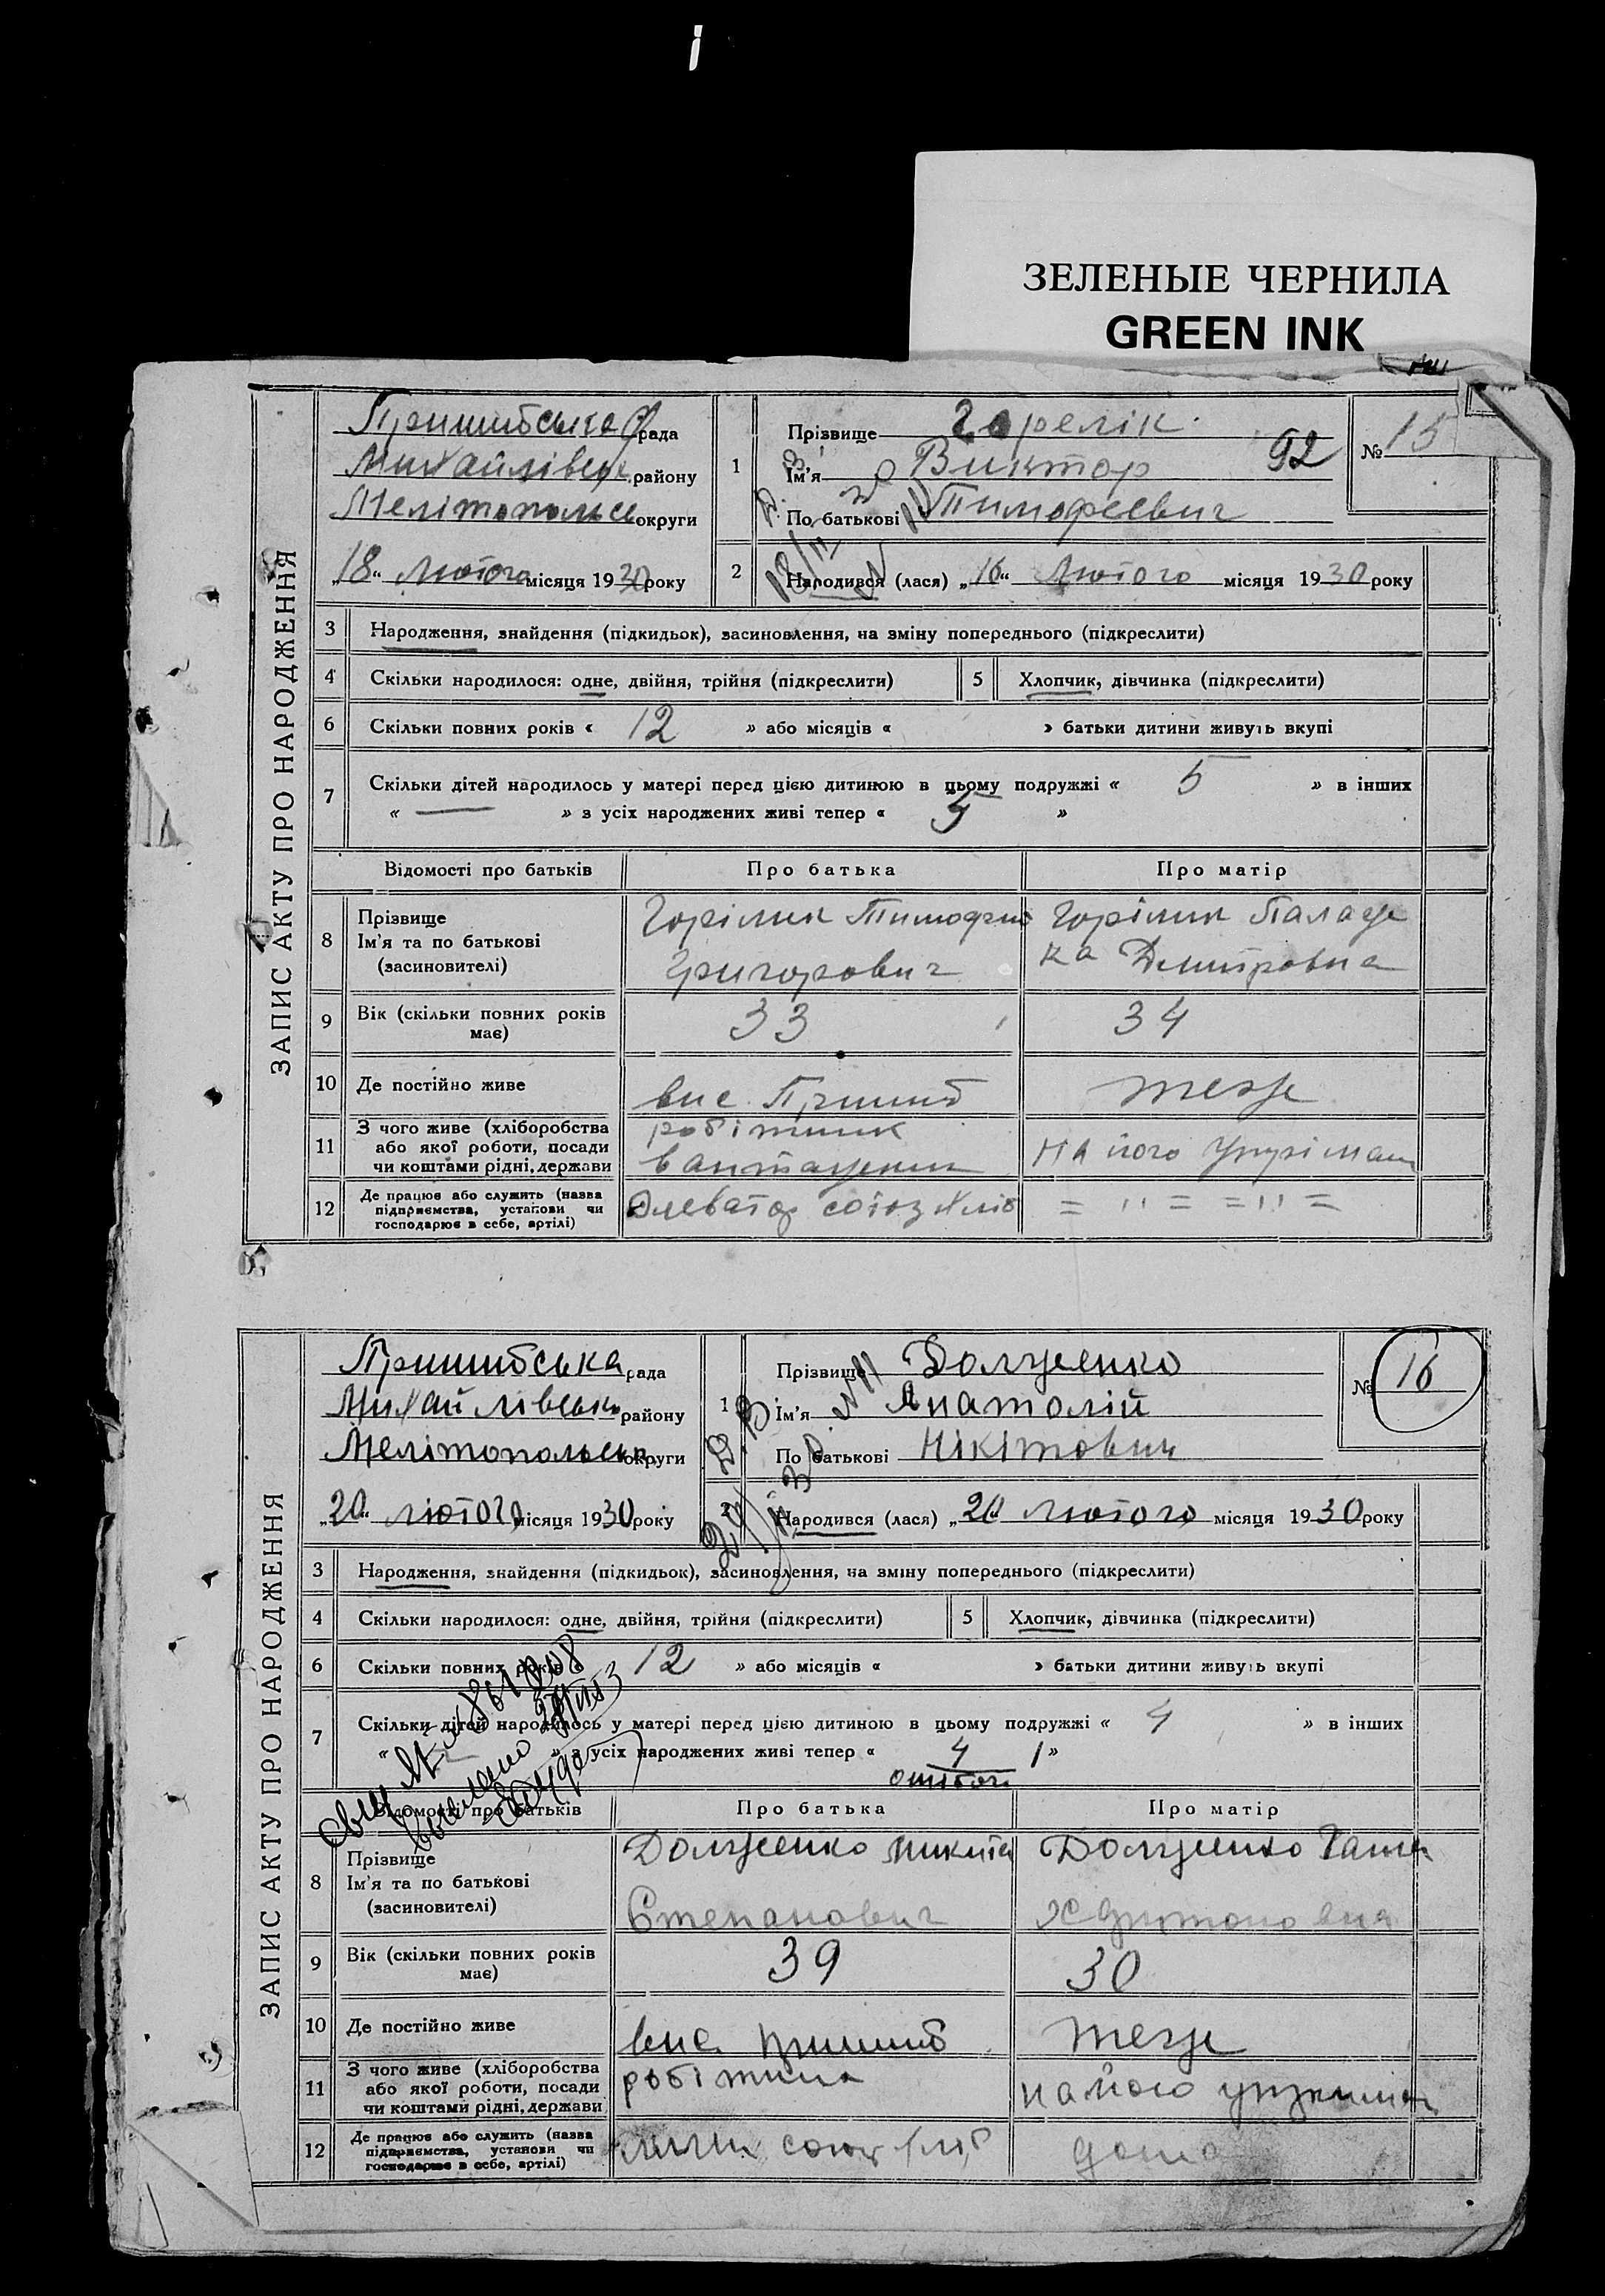 ЗЕЛЕНЫЕ ЧЕРНИЛА
GREEN INK
ЗАПИС АКТУ ПРО НАРОДЖЕННЯ
Пришибська рада
Михайлівськ району
Мелітопольськ округи
„18“ Лютого місяця 1930 року
1
Прізвище Горелік
Ім'я Виктор 92
По батькові Тимофеевич
№ 15
2
Народився (лася) „16“ Лютого місяця 1930 року
3 Народження, знайдення (підкидьок), засиновлення, на зміну попереднього (підкреслити)
4 Скільки народилося: одне, двійня, трійня (підкреслити)
5 Хлопчик, дівчинка (підкреслити)
6 Скільки повних років « 12 » або місяців « » батьки дитини живуть вкупі
7 Скільки дітей народилось у матері перед цією дитиною в цьому подружжі « 5 » в інших
« — » з усіх народжених живі тепер « 5 »
Відомості про батьків Про батька Про матір
8 Прізвище
Ім'я та по батькові
(засиновителі)
Горілик Тимофий
Григорович
Горілик Палаж
ка Дмитровна
9 Вік (скільки повних років має) 33 34
10 Де постійно живе вис. Пришиб теж
11 З чого живе (хліборобства
або якої роботи, посади
чи коштами рідні, держави
робітник
вантажник
на його
12 Де працює або служить (назва
підприємства, установи чи
господарює в себе, артілі)
Элеватор союзхліб
= " = = " =
ЗАПИС АКТУ ПРО НАРОДЖЕННЯ
Пришибська рада
Михайлівськ району
Мелітопольськ округи
„20“ лютого місяця 1930 року
1
Прізвище Долженко
Ім'я Анатолій
По батькові Нікітович
№ 16
2
Народився (лася) „20“ Лютого місяця 1930 року
3 Народження, знайдення (підкидьок), засиновлення, на зміну попереднього (підкреслити)
4 Скільки народилося: одне, двійня, трійня (підкреслити)
5 Хлопчик, дівчинка (підкреслити)
6 Скільки повних років 12 » або місяців « » батьки дитини живуть вкупі
7 Скільки дітей народилось у матері перед цією дитиною в цьому подружжі « 4 » в інших
« » з усіх народжених живі тепер « 4 1 »
Відомості про батьків Про батька Про матір
8 Прізвище
Ім'я та по батькові
(засиновителі)
Долженко Микита
Степанович
Долженко
9 Вік (скільки повних років має) 39 30
10 Де постійно живе вис. пришиб теж
11 З чого живе (хліборобства
або якої роботи, посади
чи коштами рідні, держави
робітник
на його
12 Де працює або служить (назва
підприємства, установи чи
господарює в себе, артілі)
союзхліб
дома